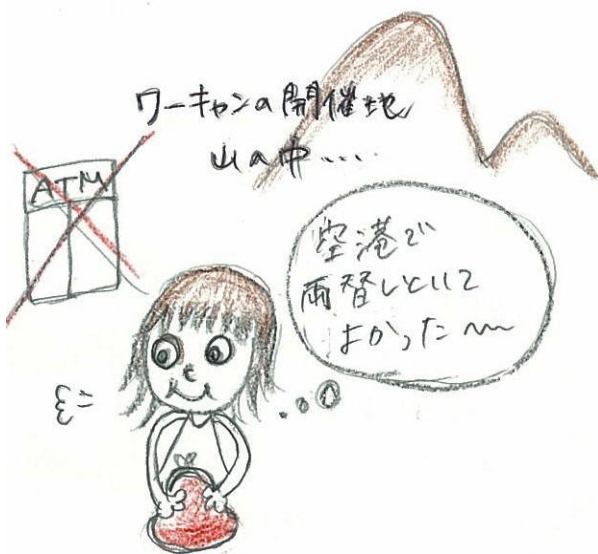 ワーキャンの開催地
山の中....
ATM
空港で
両替しといて
よかった〜